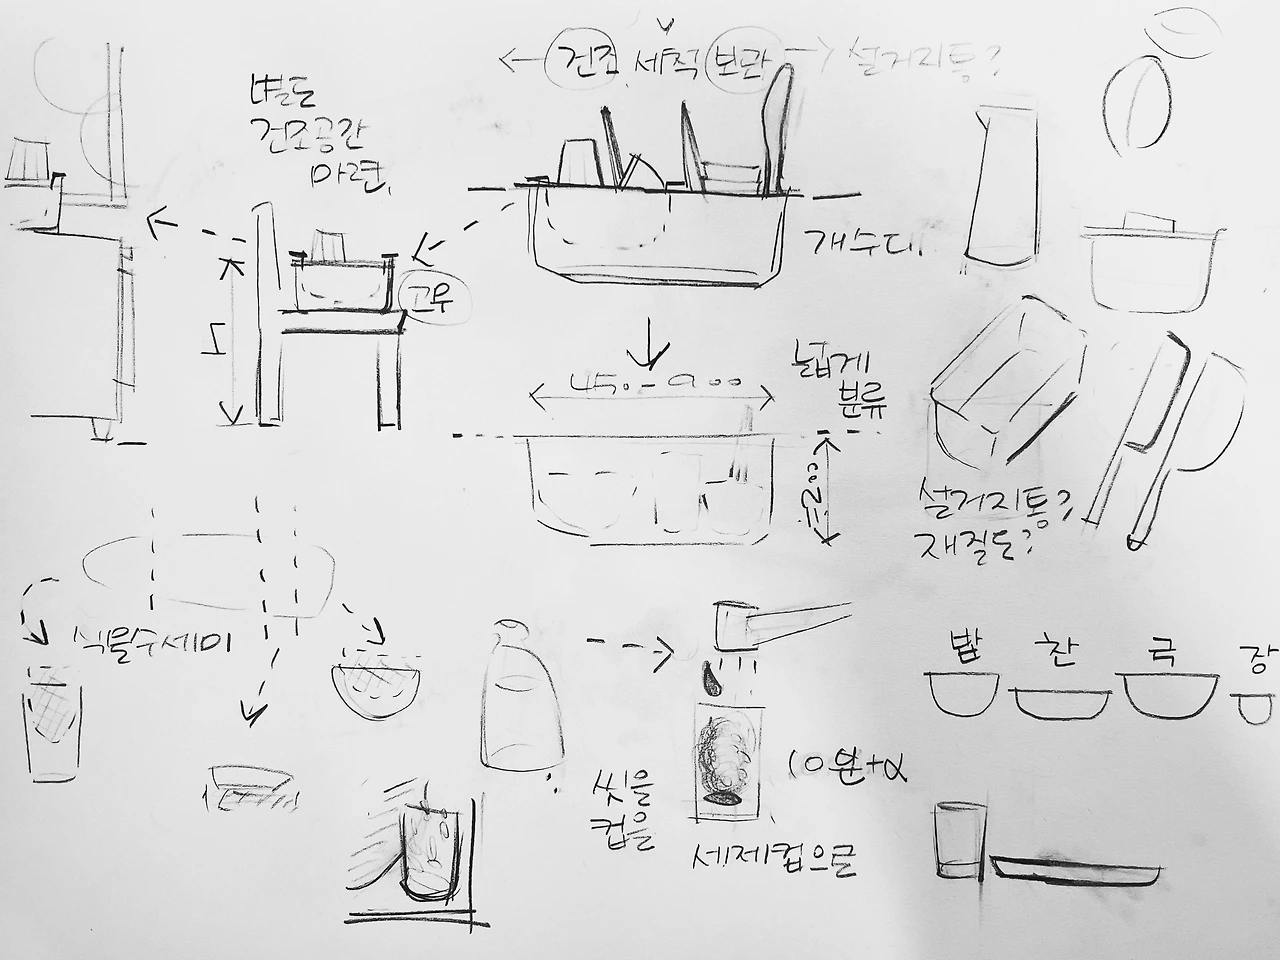 건조 세척 보관 설거지통?
별도
건조공간
마련.
개수대.
고무
450-900
넓게
분류
≒200
설거지통?
재질도?
식물수세미
밥 찬 국 장
씻을
컵을
10분+α
세제컵으로